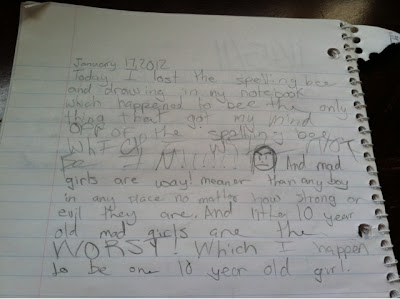 January 17,2012
Today I lost the spelling bee
and drawing in my notebook
which happened to bee the only
thing that got my mind
OFF of the spelling bee
WhICh I did NOT
WIN!!!!! And mad
girls are way! meaner than any boy
in any place no matter how strong or
evil they are. And little 10 year
old mad girls are the
WORST! Which I happen
to be one 10 year old girl.